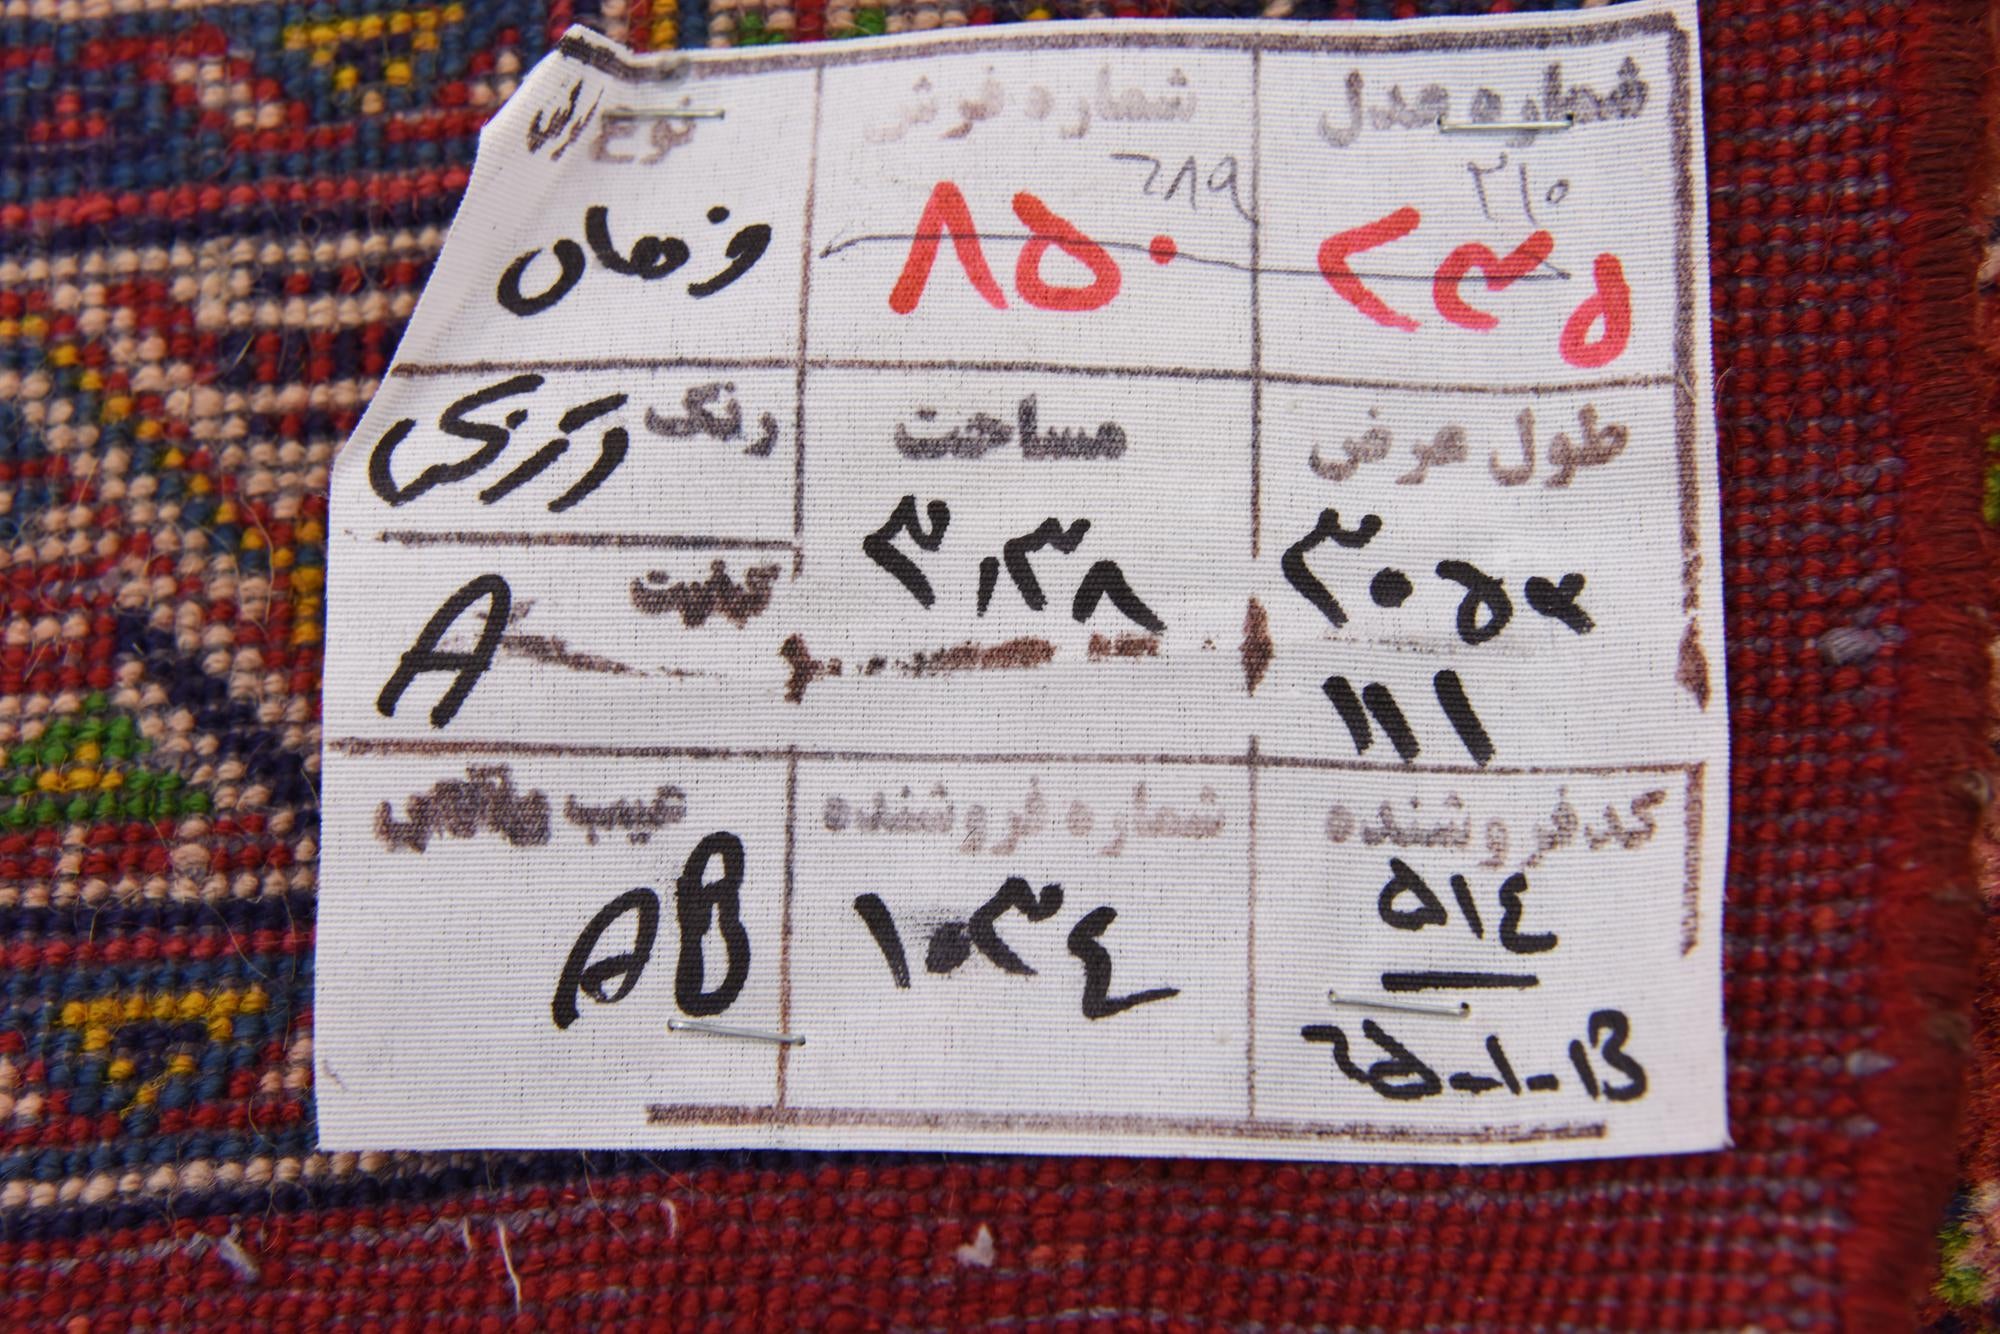 شماره عدل
۲۱۰
۲۳۵
شماره فرش
۲۸۹
۸۵۰
نوع
طول عرض
۳۰۵
۱۱۱
مساحت
۳,۳۸
رنگ
کیفیت
A
کد فروشنده
۵۱٤
۲۵-۱-۱۳
شماره فروشنده
۱۰۳٤
عیب
AB